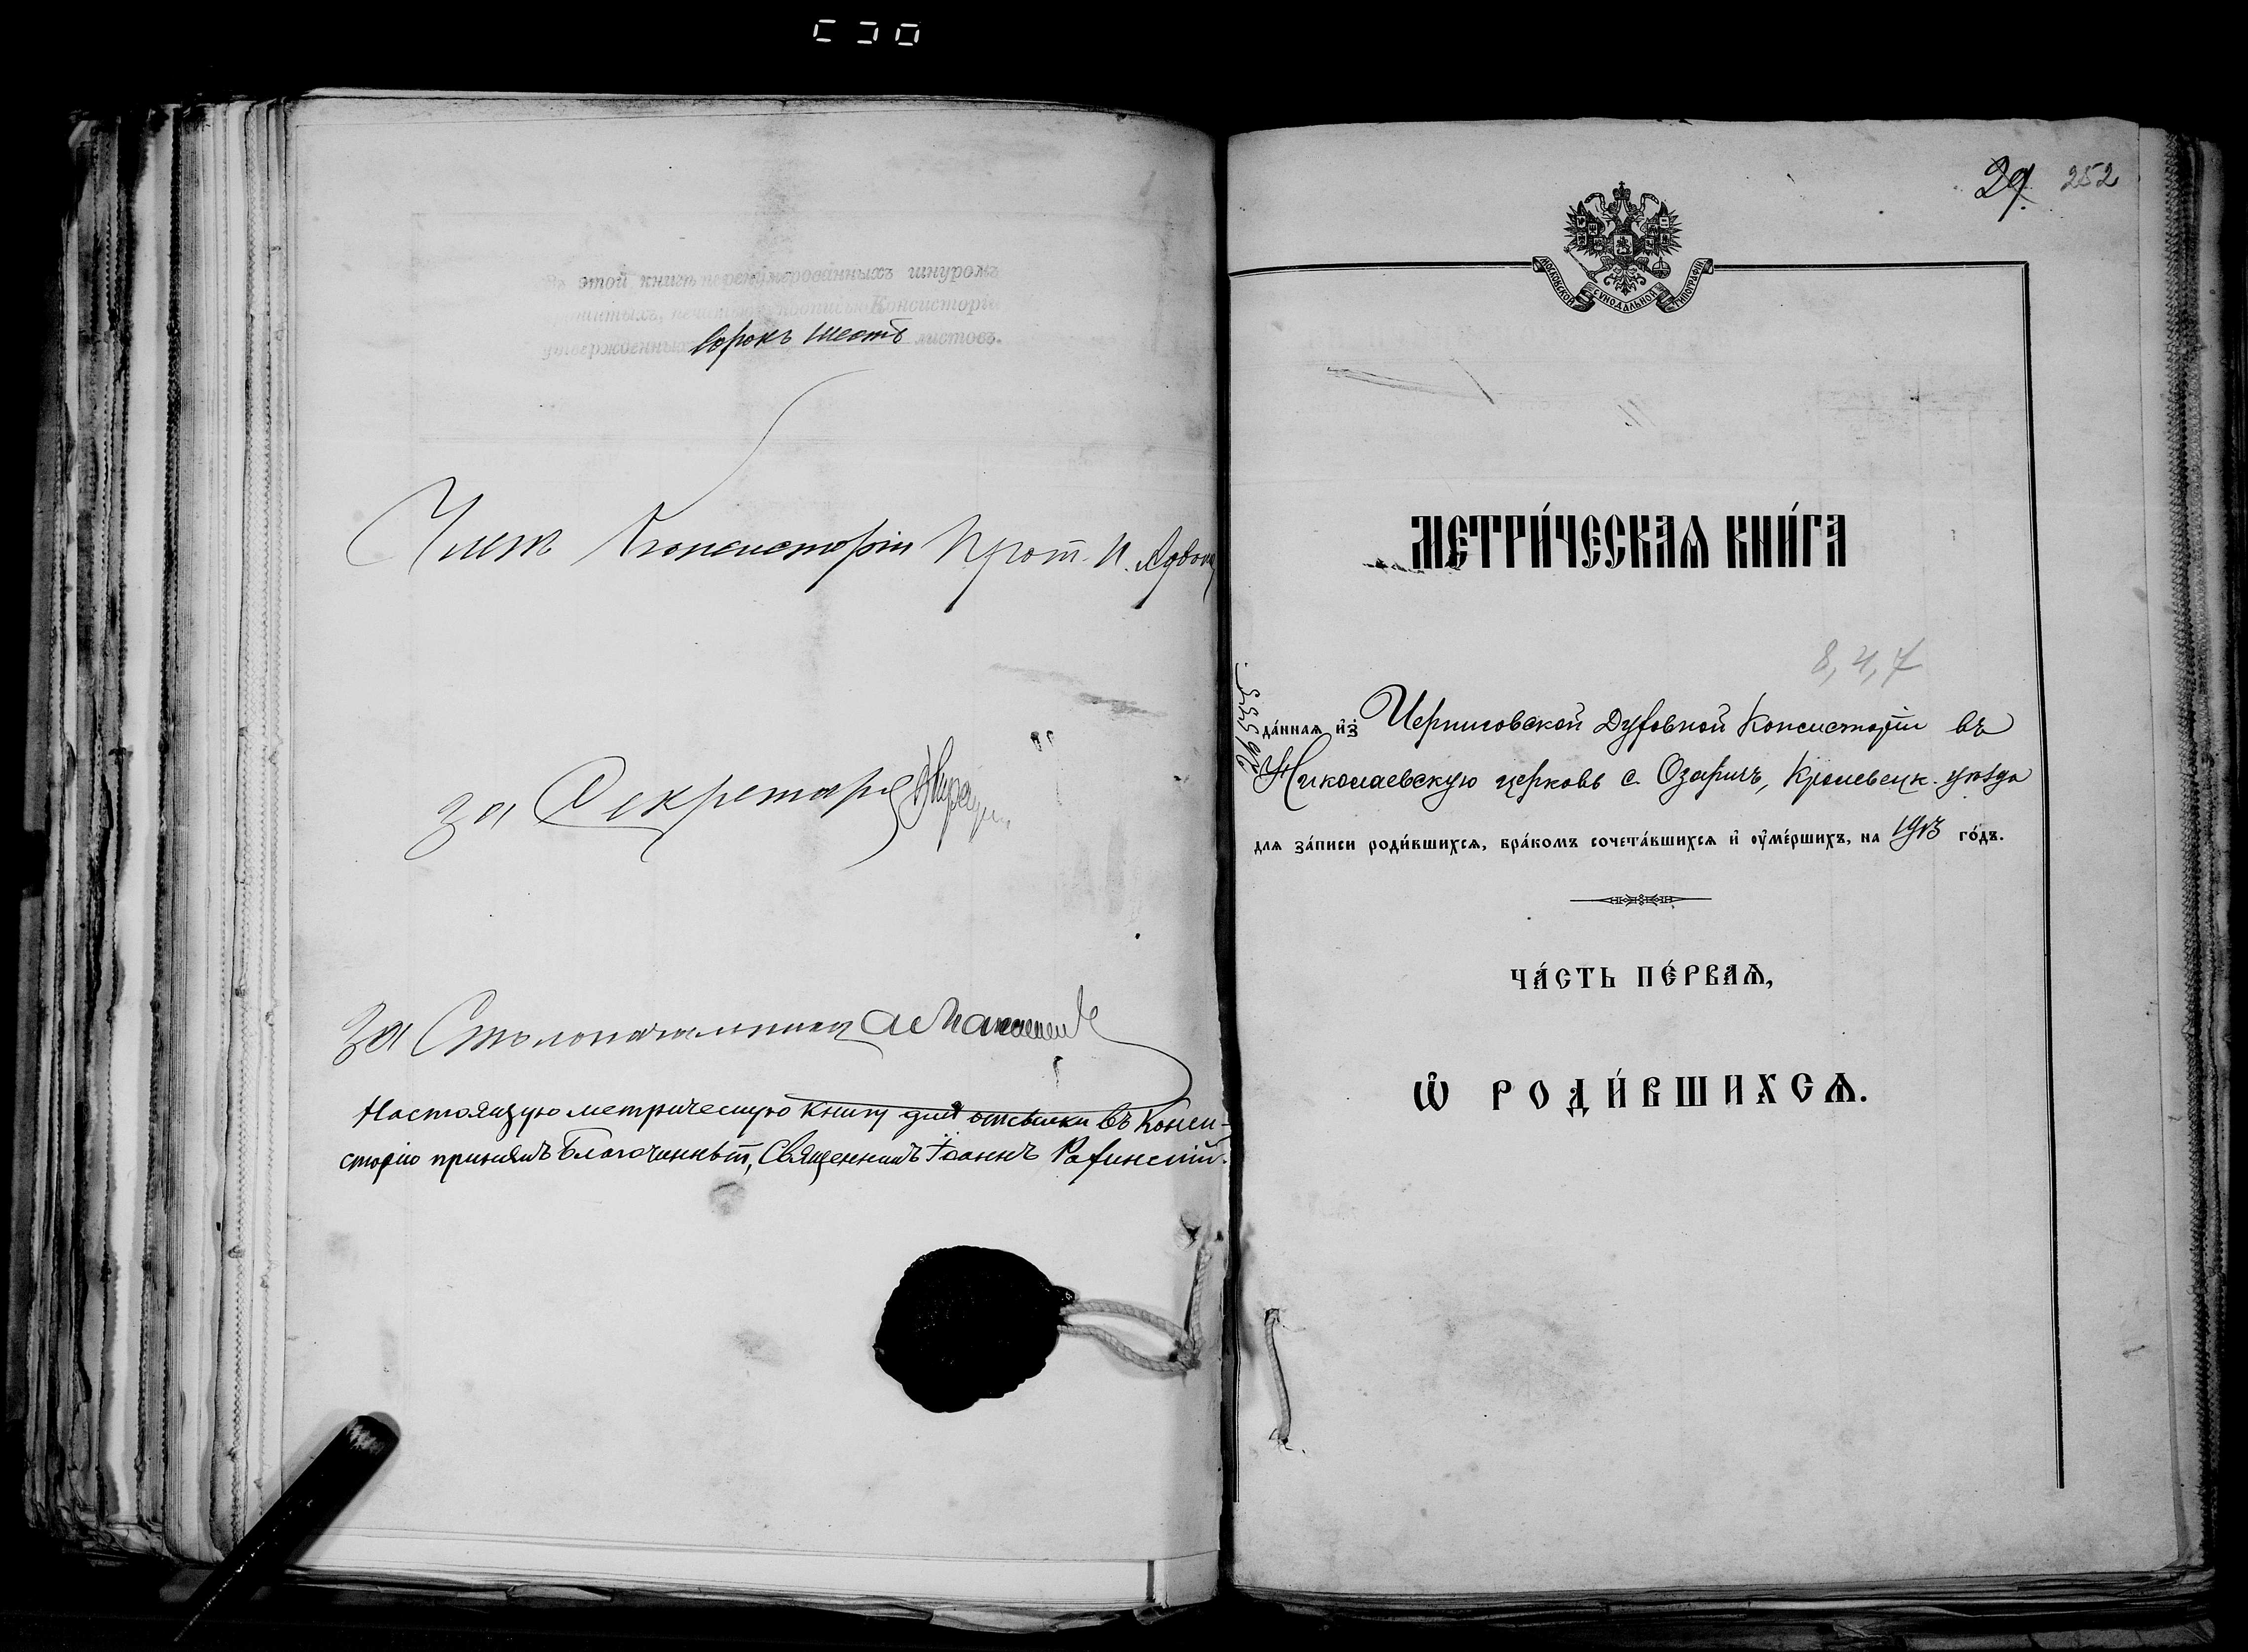 въ этой книгѣ перенумерованныхъ шнуромъ
прошитыхъ, печатью и подписью Консисторіи
утвержденныхъ Сорокъ шесть листовъ.
Членъ Консисторіи Прот. И.
За Секретаря
За Столоначальника
Настоящую метрическую книгу для отсылки въ Конси-
сторію принялъ Благочинный, Священникъ Іоаннъ Рафинскій.
29. 252
МОСКОВСКОЙ СѴНОДАЛЬНОЙ ТИПОГРАФІИ
МЕТРИ́ЧЕСКАѦ КНИ́ГА
8, 4, 7
да́ннаѧ и҆з̾ Черниговской Духовной Консисторіи въ
Николаевскую церковь с. Озаричъ, Кролевецк. уѣзда
для за́писи роди́вшихсѧ, бра́комъ сочета́вшихсѧ и҆ оу҆ме́ршихъ, на 1913 го́дъ.
ЧА́СТЬ ПЕ́РВАѦ,
Ѽ РОДИ́ВШИХСѦ.